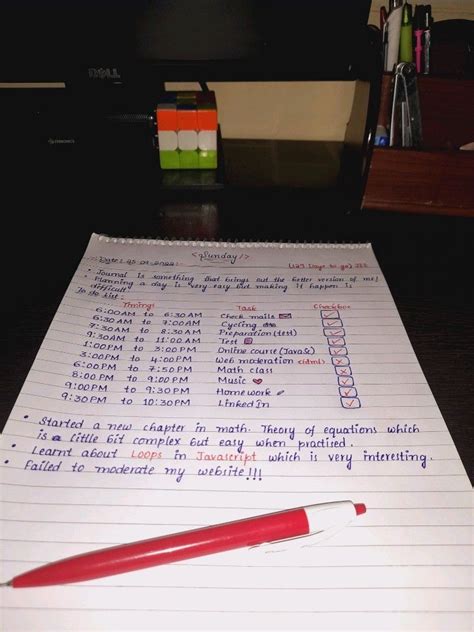 DELL
<Sunday/>
Date:
Days to go)
• Journal is something that brings out the better version of me!
• Planning a day is very easy but making it happen is
difficult!
To do list:
Timings Task Checkbox
6:00AM to 6:30AM Check mails
6:30AM to 7:00AM Cycling
7:30AM to 8:30AM Preparation(test)
9:30AM to 11:00AM Test
1:00PM to 3:00PM Online course(JavaSc)
3:00PM to 4:00PM Web moderation (html)
6:00PM to 7:50PM Math class
8:00PM to 9:00PM Music
9:00PM to 9:30PM Homework
9:30PM to 10:30PM LinkedIn
• Started a new chapter in math. Theory of equations which
is a little bit complex but easy when practised.
• Learnt about Loops in Javascript which is very interesting.
• Failed to moderate my website!!!